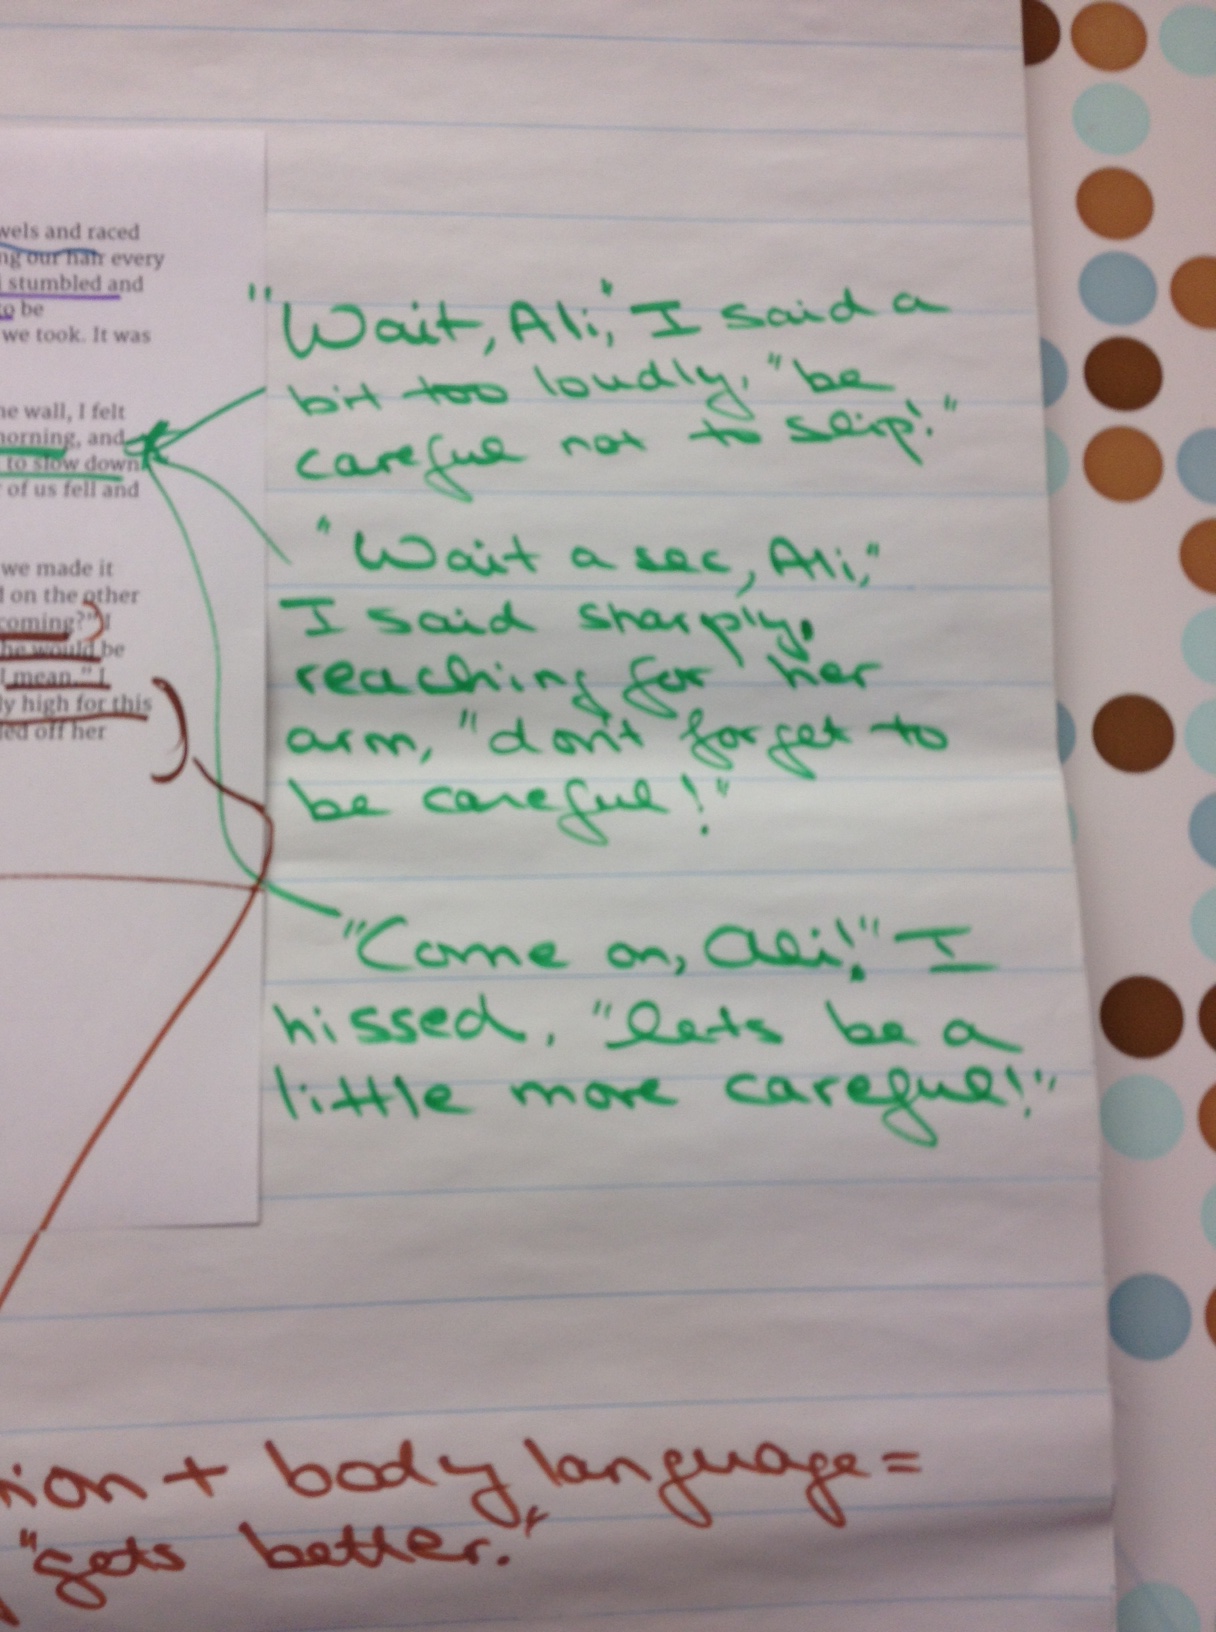 wels and raced
ng our hair every
stumbled and
to be
we took. It was
he wall, I felt
morning, and
to slow down
of us fell and
we made it
on the other
coming?" I
he would be
I mean." I
ly high for this
led off her
"Wait, Ali," I said a
bit too loudly, "be
careful not to slip!"
"Wait a sec, Ali,"
I said sharply,
reaching for her
arm, "don't forget to
be careful!"
"Come on, Ali!" I
hissed, "lets be a
little more careful!"
ion + body language =
"gets better."